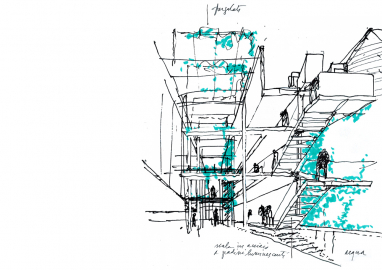 pergolato
scala in acciaio
e gradini luminescenti
acqua